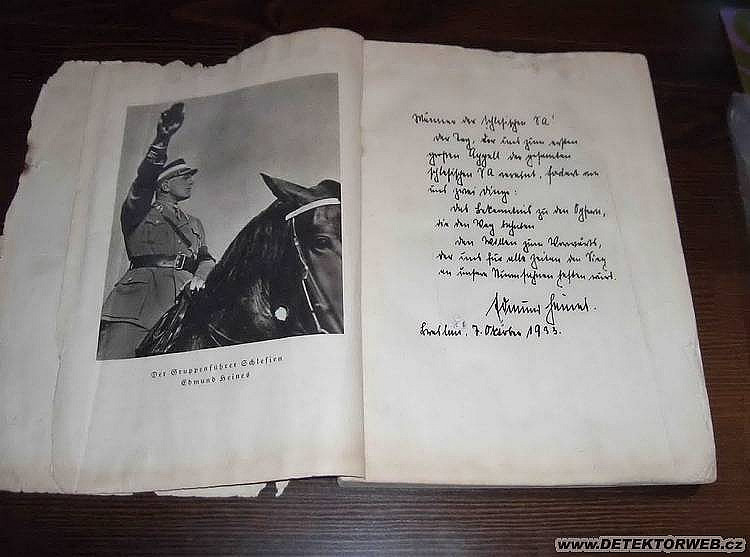 Der Gruppenführer Schlesien
Edmund Heines
Männer der schlesischen SA!
Der Tag, der uns zum ersten
großen Appell der gesamten
schlesischen SA vereint, fordert von
uns zwei Dinge:
Das Bekenntnis zu den Opfern,
die den Weg bahnten
den Willen zum Vorwärts,
der uns für alle Zeiten den Sieg
an unsere Sturmfahnen heften wird.
Edmund Heines.
Breslau, 7. Oktober 1933.
www.DETEKTORWEB.cz